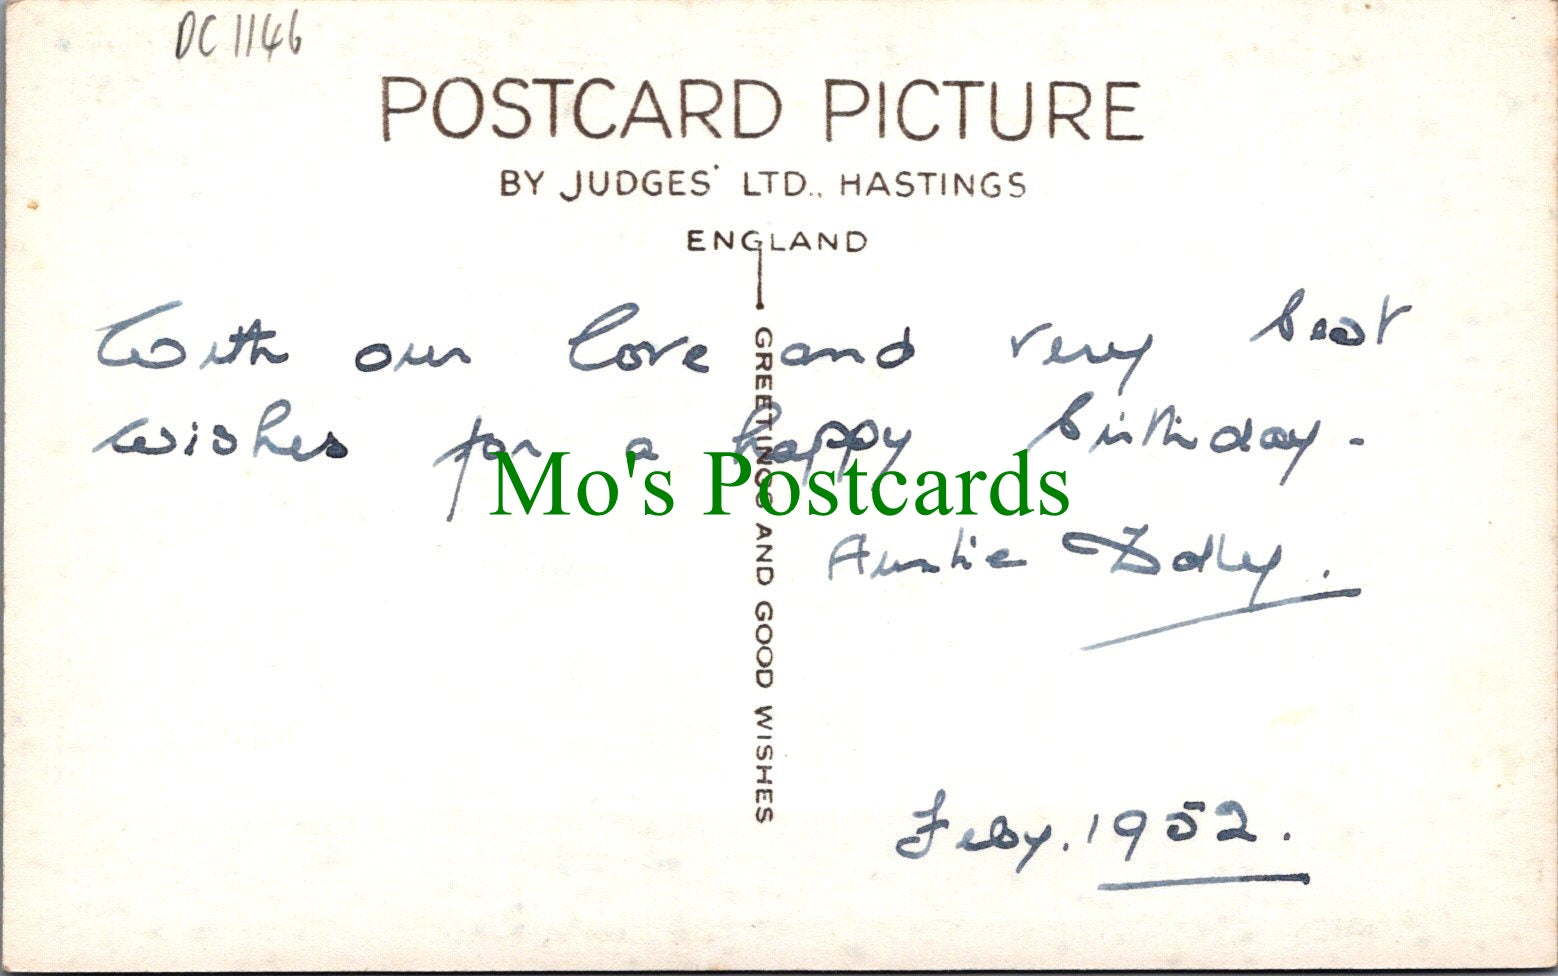 DC 1146
POSTCARD PICTURE
BY JUDGES' LTD., HASTINGS
ENGLAND
With our love and very best
wishes for a happy birthday -
Mo's Postcards
Auntie Dolly.
GREETINGS AND GOOD WISHES
Feby. 1952.